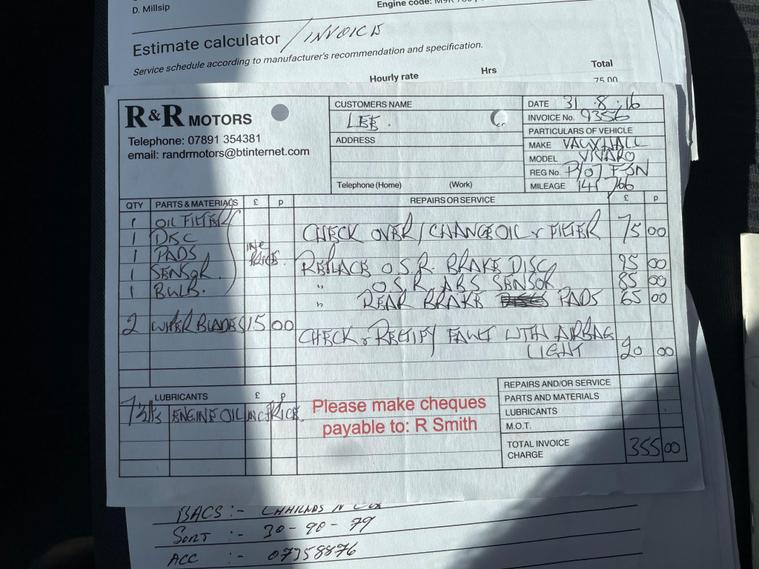 D. Millsip
Engine code: M9R
Estimate calculator / INVOICE
Service schedule according to manufacturer's recommendation and specification.
Hourly rate Hrs Total
75.00
R&R MOTORS
Telephone: 07891 354381
email: randrmotors@btinternet.com
CUSTOMERS NAME
LEE.
ADDRESS
Telephone (Home) (Work)
DATE 31.8.16
INVOICE No. 9356
PARTICULARS OF VEHICLE
MAKE VAUXHALL
MODEL VIVARO
REG No.
MILEAGE 141766
QTY PARTS & MATERIALS £ P REPAIRS OR SERVICE £ P
1 OIL FILTER
1 DISC CHECK OVER/CHANGE OIL & FILTER 75 00
1 PADS INC PRICE.
1 SENSOR REPLACE O.S.R. BRAKE DISC 95 00
1 BULB. " O.S.R. ABS SENSOR 85 00
" REAR BRAKE PADS 65 00
2 WIPER BLADES 15 00
CHECK & RECTIFY FAULT WITH AIRBAG
LIGHT 20 00
LUBRICANTS £ P
ENGINE OIL INC PRICE.
Please make cheques
payable to: R Smith
REPAIRS AND/OR SERVICE
PARTS AND MATERIALS
LUBRICANTS
M.O.T.
TOTAL INVOICE
CHARGE 355 00
BACS:-
SORT :- 30-90-79
ACC :- 07358876